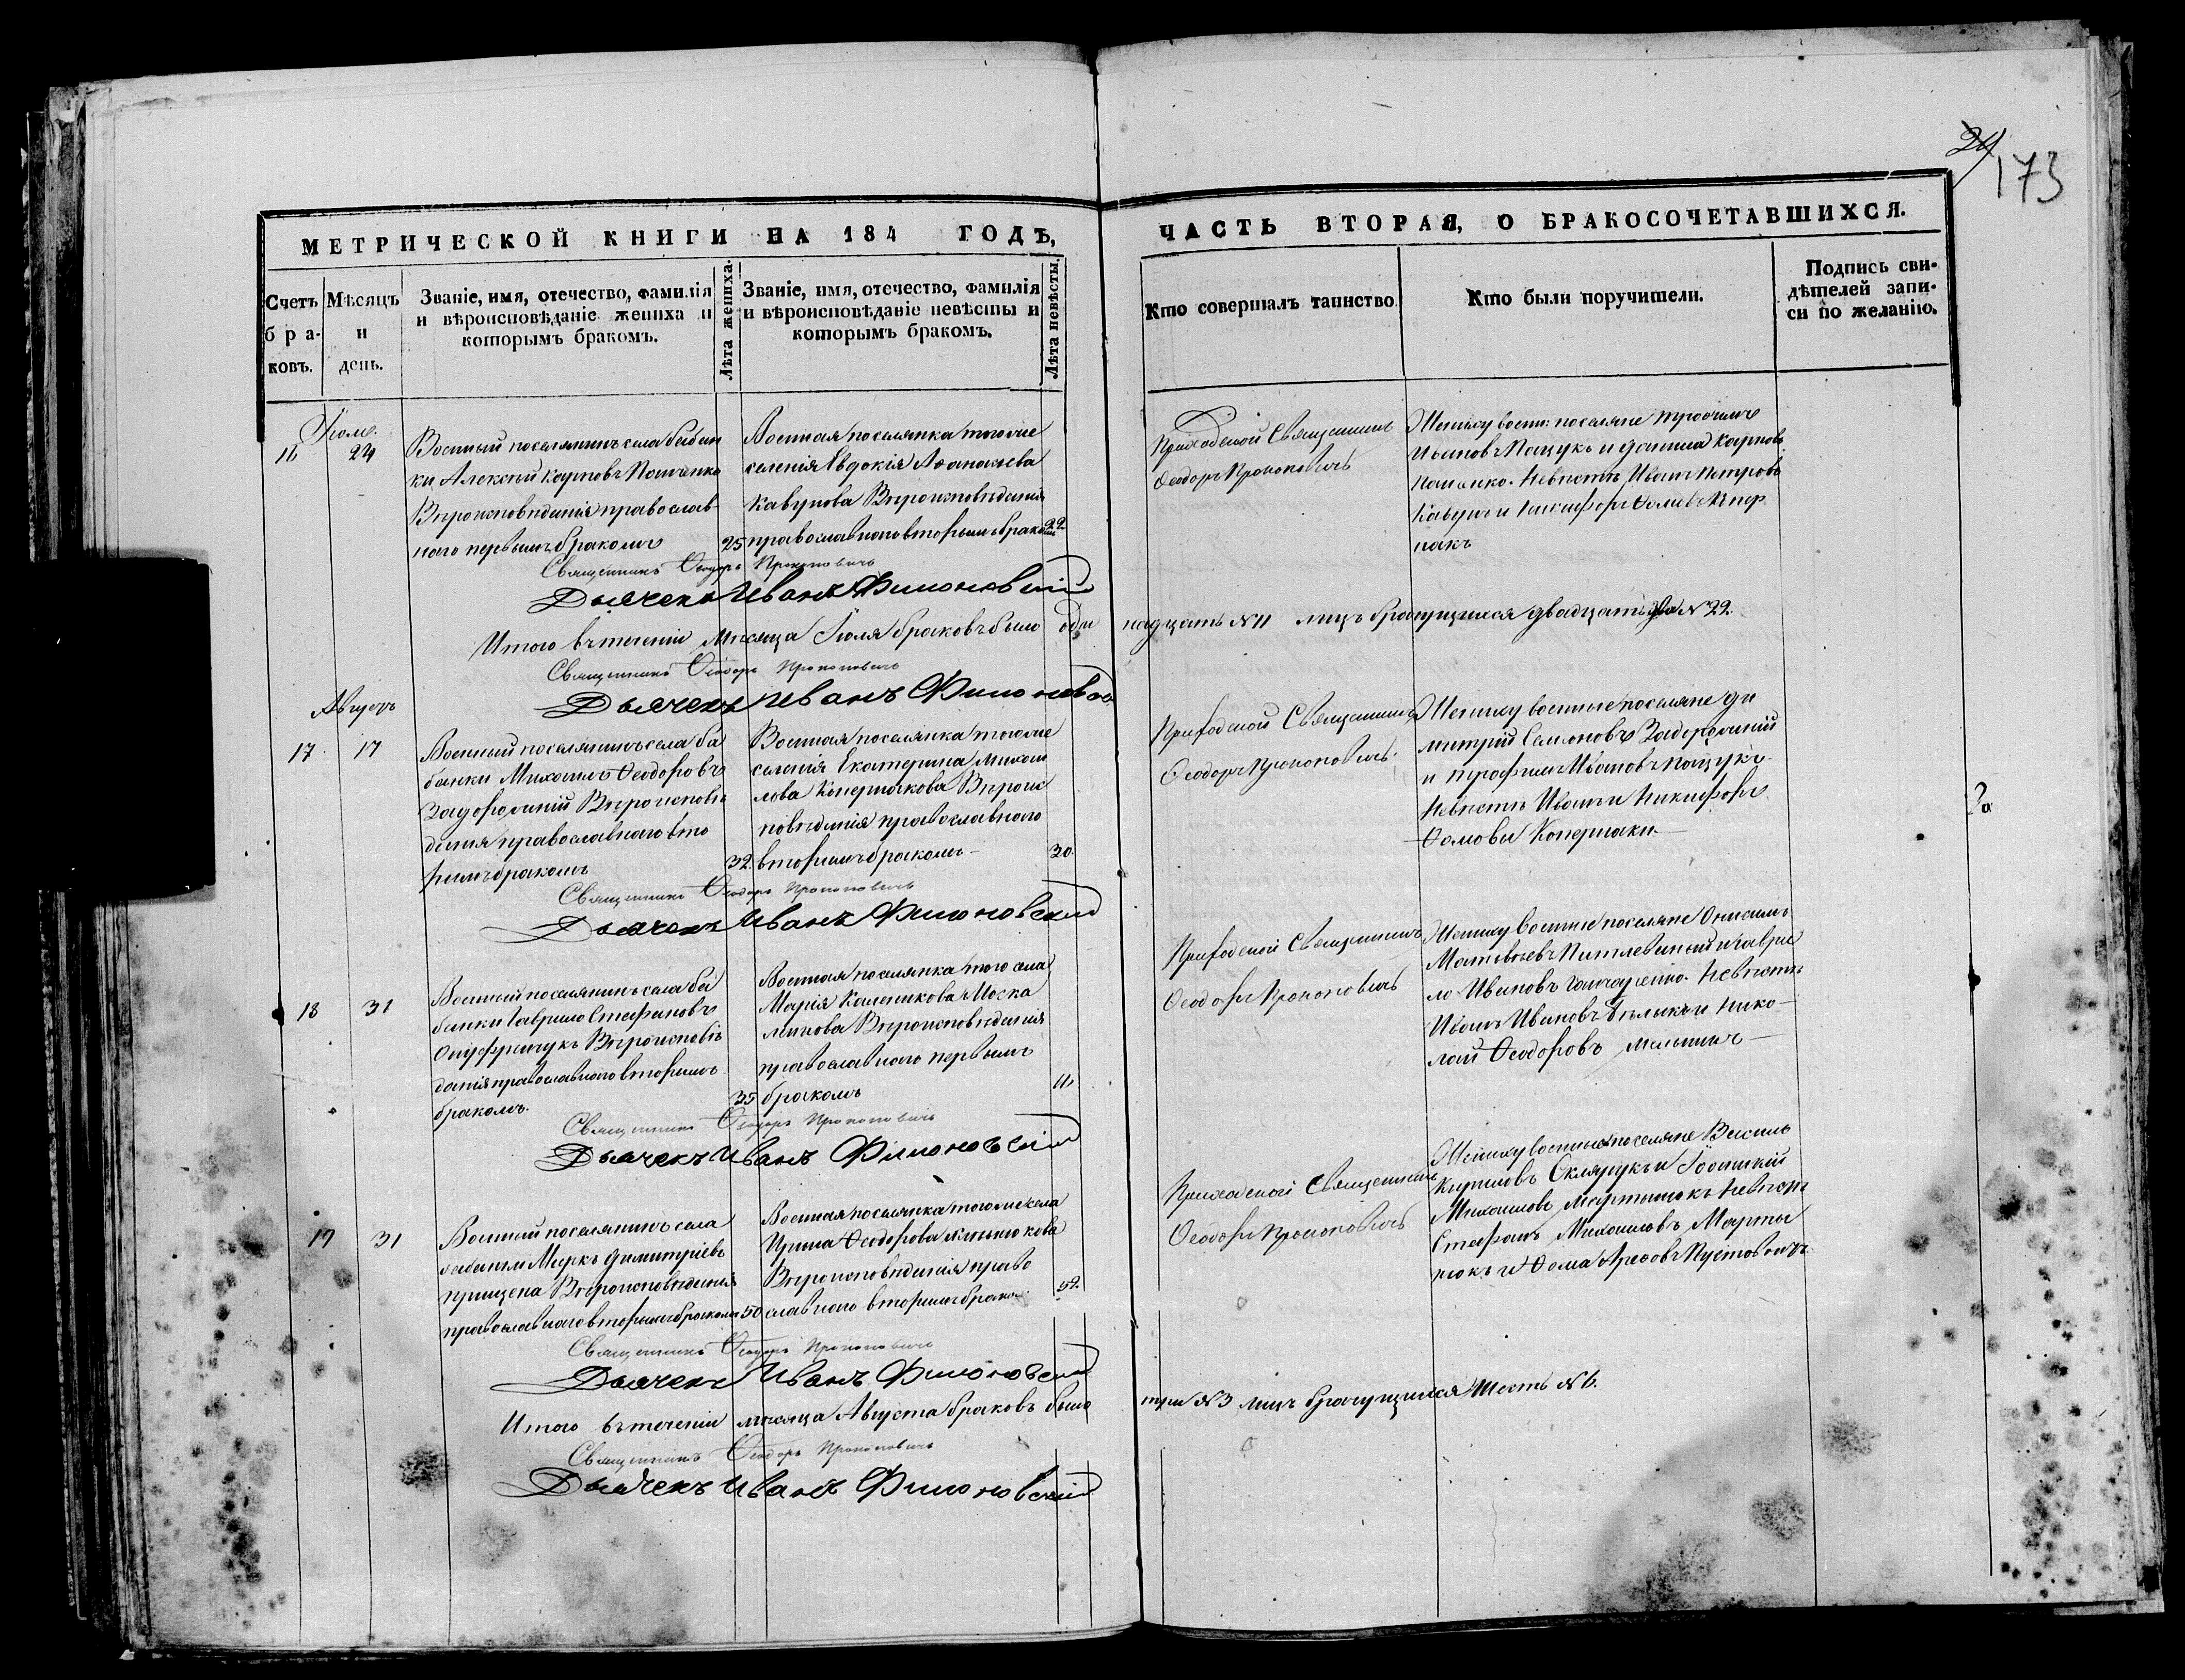 24
173
МЕТРИЧЕСКОЙ КНИГИ НА 184 ГОДЪ,
ЧАСТЬ ВТОРАЯ, О БРАКОСОЧЕТАВШИХСЯ.
Счетъ
бра-
ковъ.
Мѣсяцъ
и
день.
Званіе, имя, отечество, фамилія
и вѣроисповѣданіе жениха и
которымъ бракомъ.
Лѣта жениха.
Званіе, имя, отечество, фамилія
и вѣроисповѣданіе невѣсты и
которымъ бракомъ.
Лѣта невѣсты.
Кто совершалъ таинство.
Кто были поручители.
Подпись сви-
дѣтелей запи-
си по желанію.
Іюль.
16
24
Военный поселянинъ села бабан
ки Алексѣй Карповъ
Вѣроисповѣданія православ
наго первымъ бракомъ
25
Военная поселянка тогоже
селенія Авдокія Аѳанасьева
Кавунова Вѣроисповѣданія
православнаго вторымъ бракомъ
22
Приходской Священникъ
Ѳеодоръ Прокоповичъ
Жениху воен: поселяне Трофимъ
Ивановъ Пащукъ и Данила Карповъ
Невѣстѣ Иванъ Петровъ
Кавунъ и Никифоръ Ѳомивъ Копер
накъ
Священникъ Ѳеодоръ Прокоповичъ
Дьячекъ Иванъ Филоновскій
Итого въ теченіи мѣсяца Іюля браковъ было оди надцать №11 лицъ брачущихся двадцать два №22.
Священникъ Ѳеодоръ Прокоповичъ
Дьячекъ Иванъ Филоновскій
Августъ
17
17
Военный поселянинъ села ба
банки Михаилъ Ѳеодоровъ
Задорожний Вѣроисповѣ
данія православнаго вто
рымъ бракомъ
32
Военная поселянка тогоже
селенія Екатерина Михаи
лова Копернакова Вѣроис
повѣданія православнаго
вторымъ бракомъ
30
Приходской Священникъ
Ѳеодоръ Прокоповичъ
Жениху военные поселяне Ди
митрій Семеновъ Задорожний
и Трофимъ Ивановъ Пащукъ.
Невѣстѣ Иванъ и Никифоръ
Ѳомовы Копернаки
Священникъ Ѳеодоръ Прокоповичъ
Дьячекъ Иванъ Филоновскій
18
31
Военный поселянинъ села ба
банки Гаврило Стефановъ
Вѣроисповѣ
данія православнаго вторымъ
бракомъ.
35
Военная поселянка того села
Марія Каленикова Моска
Вѣроисповѣданія
православнаго первымъ
бракомъ
Приходской Священникъ
Ѳеодоръ Прокоповичъ
Жениху военные поселяне Онисимъ
Матвѣевъ и Гаври
ло Ивановъ Гончаренко. Невѣстѣ
Иванъ Ивановъ и Нико
лай Ѳеодоровъ
Священникъ Ѳеодоръ Прокоповичъ
Дьячекъ Иванъ Филоновскій
19
31
Военный поселянинъ села
Маркъ Димитріевъ
Вѣроисповѣданія
православнаго вторымъ бракомъ
50
Военная поселянка тогоже села
Ирина Ѳеодорова
Вѣроисповѣданія право
славнаго вторымъ бракомъ
52
Приходской Священникъ
Ѳеодоръ Прокоповичъ
Жениху военные поселяне Василь
Кириловъ Склярукъ и
Михаиловъ Мартынюкъ Невѣстѣ
Стефанъ Михаиловъ Марты
нюкъ и Ѳома Пустовитъ
Священникъ Ѳеодоръ Прокоповичъ
Дьячекъ Иванъ Филоновскій
Итого въ теченіи мѣсяца Августа браковъ было три №3 лицъ брачущихся шесть №6.
Священникъ Ѳеодоръ Прокоповичъ
Дьячекъ Иванъ Филоновскій